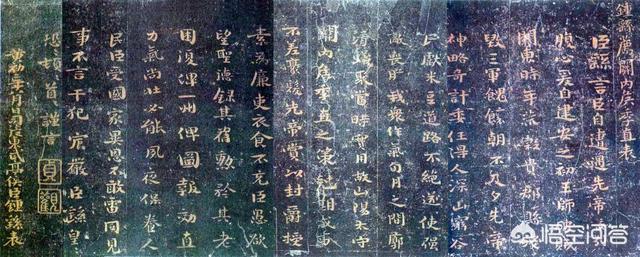 鍾繇薦關內侯季直表
臣繇言臣自遭遇先帝忝列
腹心爰自建安之初王師破賊
關東時年荒穀貴郡縣殘
毀三軍餽饟朝不及夕先帝
神略奇計委任得人深山窮谷
民獻米豆道路不絕遂使強
敵喪膽我衆作氣旬月之間廓
清蟻聚當時實用故山陽太守
關內侯季直之策剋期成事
不差豪髮先帝賞以封爵授
素為廉吏衣食不充臣愚欲
望聖德錄其舊勳矜其老
困復俾一州俾圖報效直
力氣尚壯必能夙夜保養人
民臣受國家異恩不敢雷同見
事不言干犯宸嚴臣繇皇
恐頓首謹言
貞觀
黃初二年八月日司徒東武亭侯臣鍾繇表
悟空问答